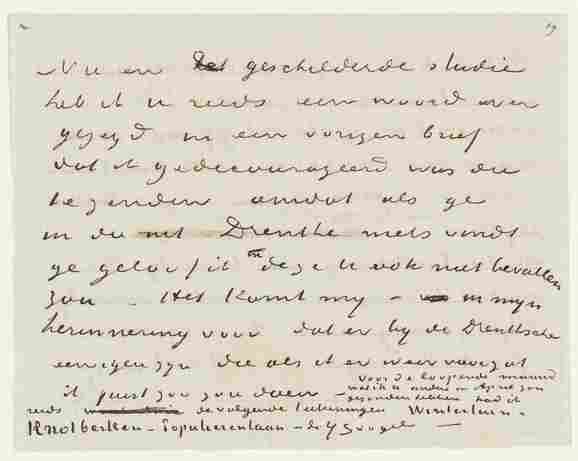 Nu en det geschilderde studie
heb ik u reeds een woord over
gezegd in een vorigen brief
dat ik gedecourageerd was die
te zenden omdat als ge
in die uit Drenthe niets vindt
ge geloof ik ook deze u ook niet bevallen
zou. Het komt mij – in mijn
herinnering voor dat er bij de Drenthsche
eenigen zijn die als ik er weer voor zat
ik juist zoo zou doen –
voor de loopende maand
welke ik anders in April zou
gezonden hebben had ik
reeds de volgende teekeningen Wintertuin –
Knotberken – Populierenlaan – de Ijsvogel –